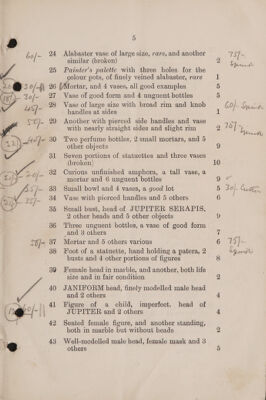 5
24 Alabaster vase of large size, rare, and another
similar (broken) 2
25 Painter's palette with three holes for the
colour pots, of finely veined alabaster, rare 1
26 Mortar, and 4 vases, all good examples 5
27 Vase of good form and 4 unguent bottles 5
28 Vase of large size with broad rim and knob
handles at sides 1
29 Another with pierced side handles and vase
with nearly straight sides and slight rim 2
30 Two perfume bottles, 2 small mortars, and 5
other objects 9
31 Seven portions of statuettes and three vases
(broken) 10
32 Curious unfinished amphora, a tall vase, a
mortar and 6 unguent bottles 9
33 Small bowl and 4 vases, a good lot 5
34 Vase with pierced handles and 5 others 6
35 Small bust, head of JUPITER SERAPIS,
2 other heads and 5 other objects 9
36 Three unguent bottles, a vase of good form
and 3 others 7
37 Mortar and 5 others various 6
38 Foot of a statuette, hand holding a patera, 2
busts and 4 other portions of figures 8
39 Female head in marble, and another, both life
size and in fair condition 2
40 JANIFORM head, finely modelled male head
and 2 others 4
41 Figure of a child, imperfect, head of
JUPITER and 2 others 4
42 Seated figure, and another standing,
both in marble but without heads 2
43 Well-modelled male head, female mask and 3
others 5